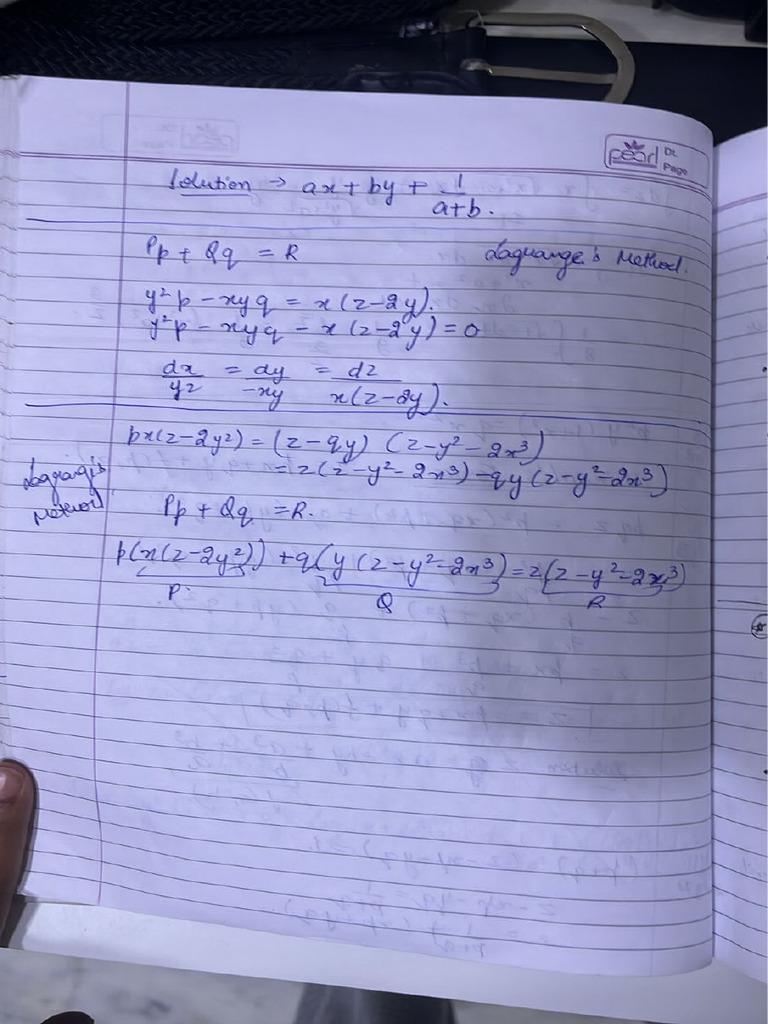 pearl Dt.
Page
Solution → ax + by + 1/(a+b).
Pp + Qq = R Lagrange's Method.
y²p - xyq = x(z-2y).
y²p - xyq - x(z-2y) = 0
dx/y² = dy/-xy = dz/x(z-2y).
px(z-2y²) = (z-qy) (z-y²-2x³)
= z(z-y²-2x³) - qy(z-y²-2x³)
Lagrang's Method
Pp + Qq = R.
p(x(z-2y²)) + q(y(z-y²-2x³) = z(z-y²-2x³)
P. Q R